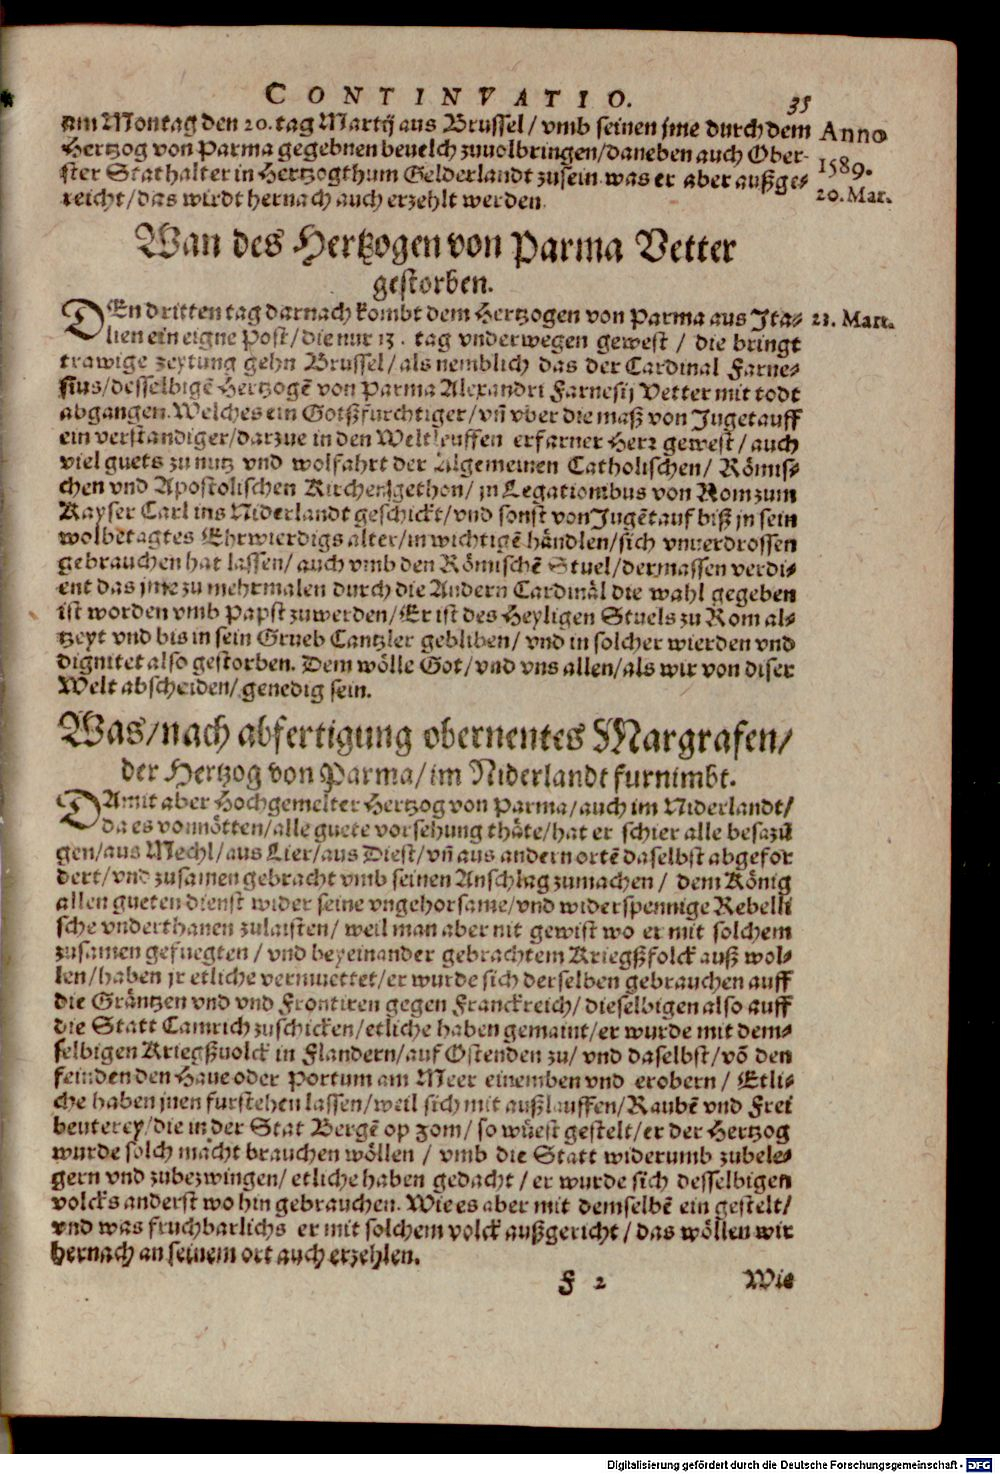 CONTINVATIO. 35
am Montag den 20. tag Martij aus Brussel / vmb seinen jme durch dem
Hertzog von Parma gegebnen beuelch zuuolbringen/daneben auch Ober-
ster Stathalter in Hertzogthum Gelderlandt zusein was er aber außge-
reicht/das wirdt hernach auch erzehlt werden.
Anno
1589.
20. Mar.
Wan des Hertzogen von Parma Vetter
gestorben.
DEn dritten tag darnach kombt dem Hertzogen von Parma aus Jta-
lien ein eigne Post/die nur 13. tag vnderwegen gewest / die bringt
trawige zeytung gehn Brussel/als nemblich das der Cardinal Farne-
sius/desselbigẽ Hertzogẽ von Parma Alexandri Farnesij Vetter mit todt
abgangen. Welches ein Gotßfurchtiger/vñ vber die maß von Juget auff
ein verstandiger/darzue in den Weltleuffen erfarner Herr gewest/auch
viel guets zu nutz vnd wolfahrt der Algemeinen Catholischen/ Römis-
chen vnd Apostolischen Kirchen gethon/ jn Legationibus von Rom zum
Kayser Carl ins Niderlandt geschickt/vnd sonst von Jugẽt auf biß jn sein
wolbetagtes Ehrwierdigs alter/in wichtigẽ händlen/sich vnuerdrossen
gebrauchen hat lassen/ auch vmb den Römischẽ Stuel/dermassen verdi-
ent das jme zu mehrmalen durch die Andern Cardinäl die wahl gegeben
ist worden vmb Papst zuwerden/Er ist des Heyligen Stuels zu Rom al-
tzeyt vnd bis in sein Grueb Cantzler gebliben/ vnd in solcher wierden vnd
dignitet also gestorben. Dem wölle Got/vnd vns allen/als wir von diser
Welt abscheiden/genedig sein.
23. Mart.
Was/nach abfertigung obernentes Margrafen/
der Hertzog von Parma/im Niderlandt furnimbt.
DAmit aber Hochgemelter Hertzog von Parma/auch im Niderlandt/
da es vonnötten/alle guete vorsehung thäte/hat er schier alle besazũ
gen/aus Mechl/aus Lier/aus Diest/vñ aus andern ortẽ daselbst abgefor
dert/vnd zusamen gebracht vmb seinen Anschlag zumachen / dem König
allen gueten dienst wider seine vngehorsame/vnd widerspennige Rebelli
sche vnderthanen zulaisten/ weil man aber nit gewist wo er mit solchem
zusamen gefuegten / vnd beyeinander gebrachtem Kriegßfolck auß wol-
len/haben jr etliche vermuettet/er wurde sich derselben gebrauchen auff
die Gräntzen vnd vnd Frontiren gegen Franckreich/ dieselbigen also auff
die Statt Camrich zuschicken/etliche haben gemaint/er wurde mit dem-
selbigen Kriegßuolck in Flandern/auf Ostenden zu/ vnd daselbst/võ den
feinden den Haue oder Portum am Meer einemben vnd erobern / Etli-
che haben jnen furstehen lassen/weil sich mit außlauffen/Raubẽ vnd Frei
beuterey/die in der Stat Bergẽ op zom/ so wüest gestelt/er der Hertzog
wurde solch macht brauchen wöllen / vmb die Statt widerumb zubele-
gern vnd zubezwingen/etliche haben gedacht / er wurde sich desselbigen
volcks anderst wo hin gebrauchen. Wie es aber mit demselbẽ ein gestelt/
vnd was fruchbarlichs er mit solchem volck außgericht / das wöllen wir
hernach an seinem ort auch erzehlen.
F 2 Wie
Digitalisierung gefördert durch die Deutsche Forschungsgemeinschaft - DFG